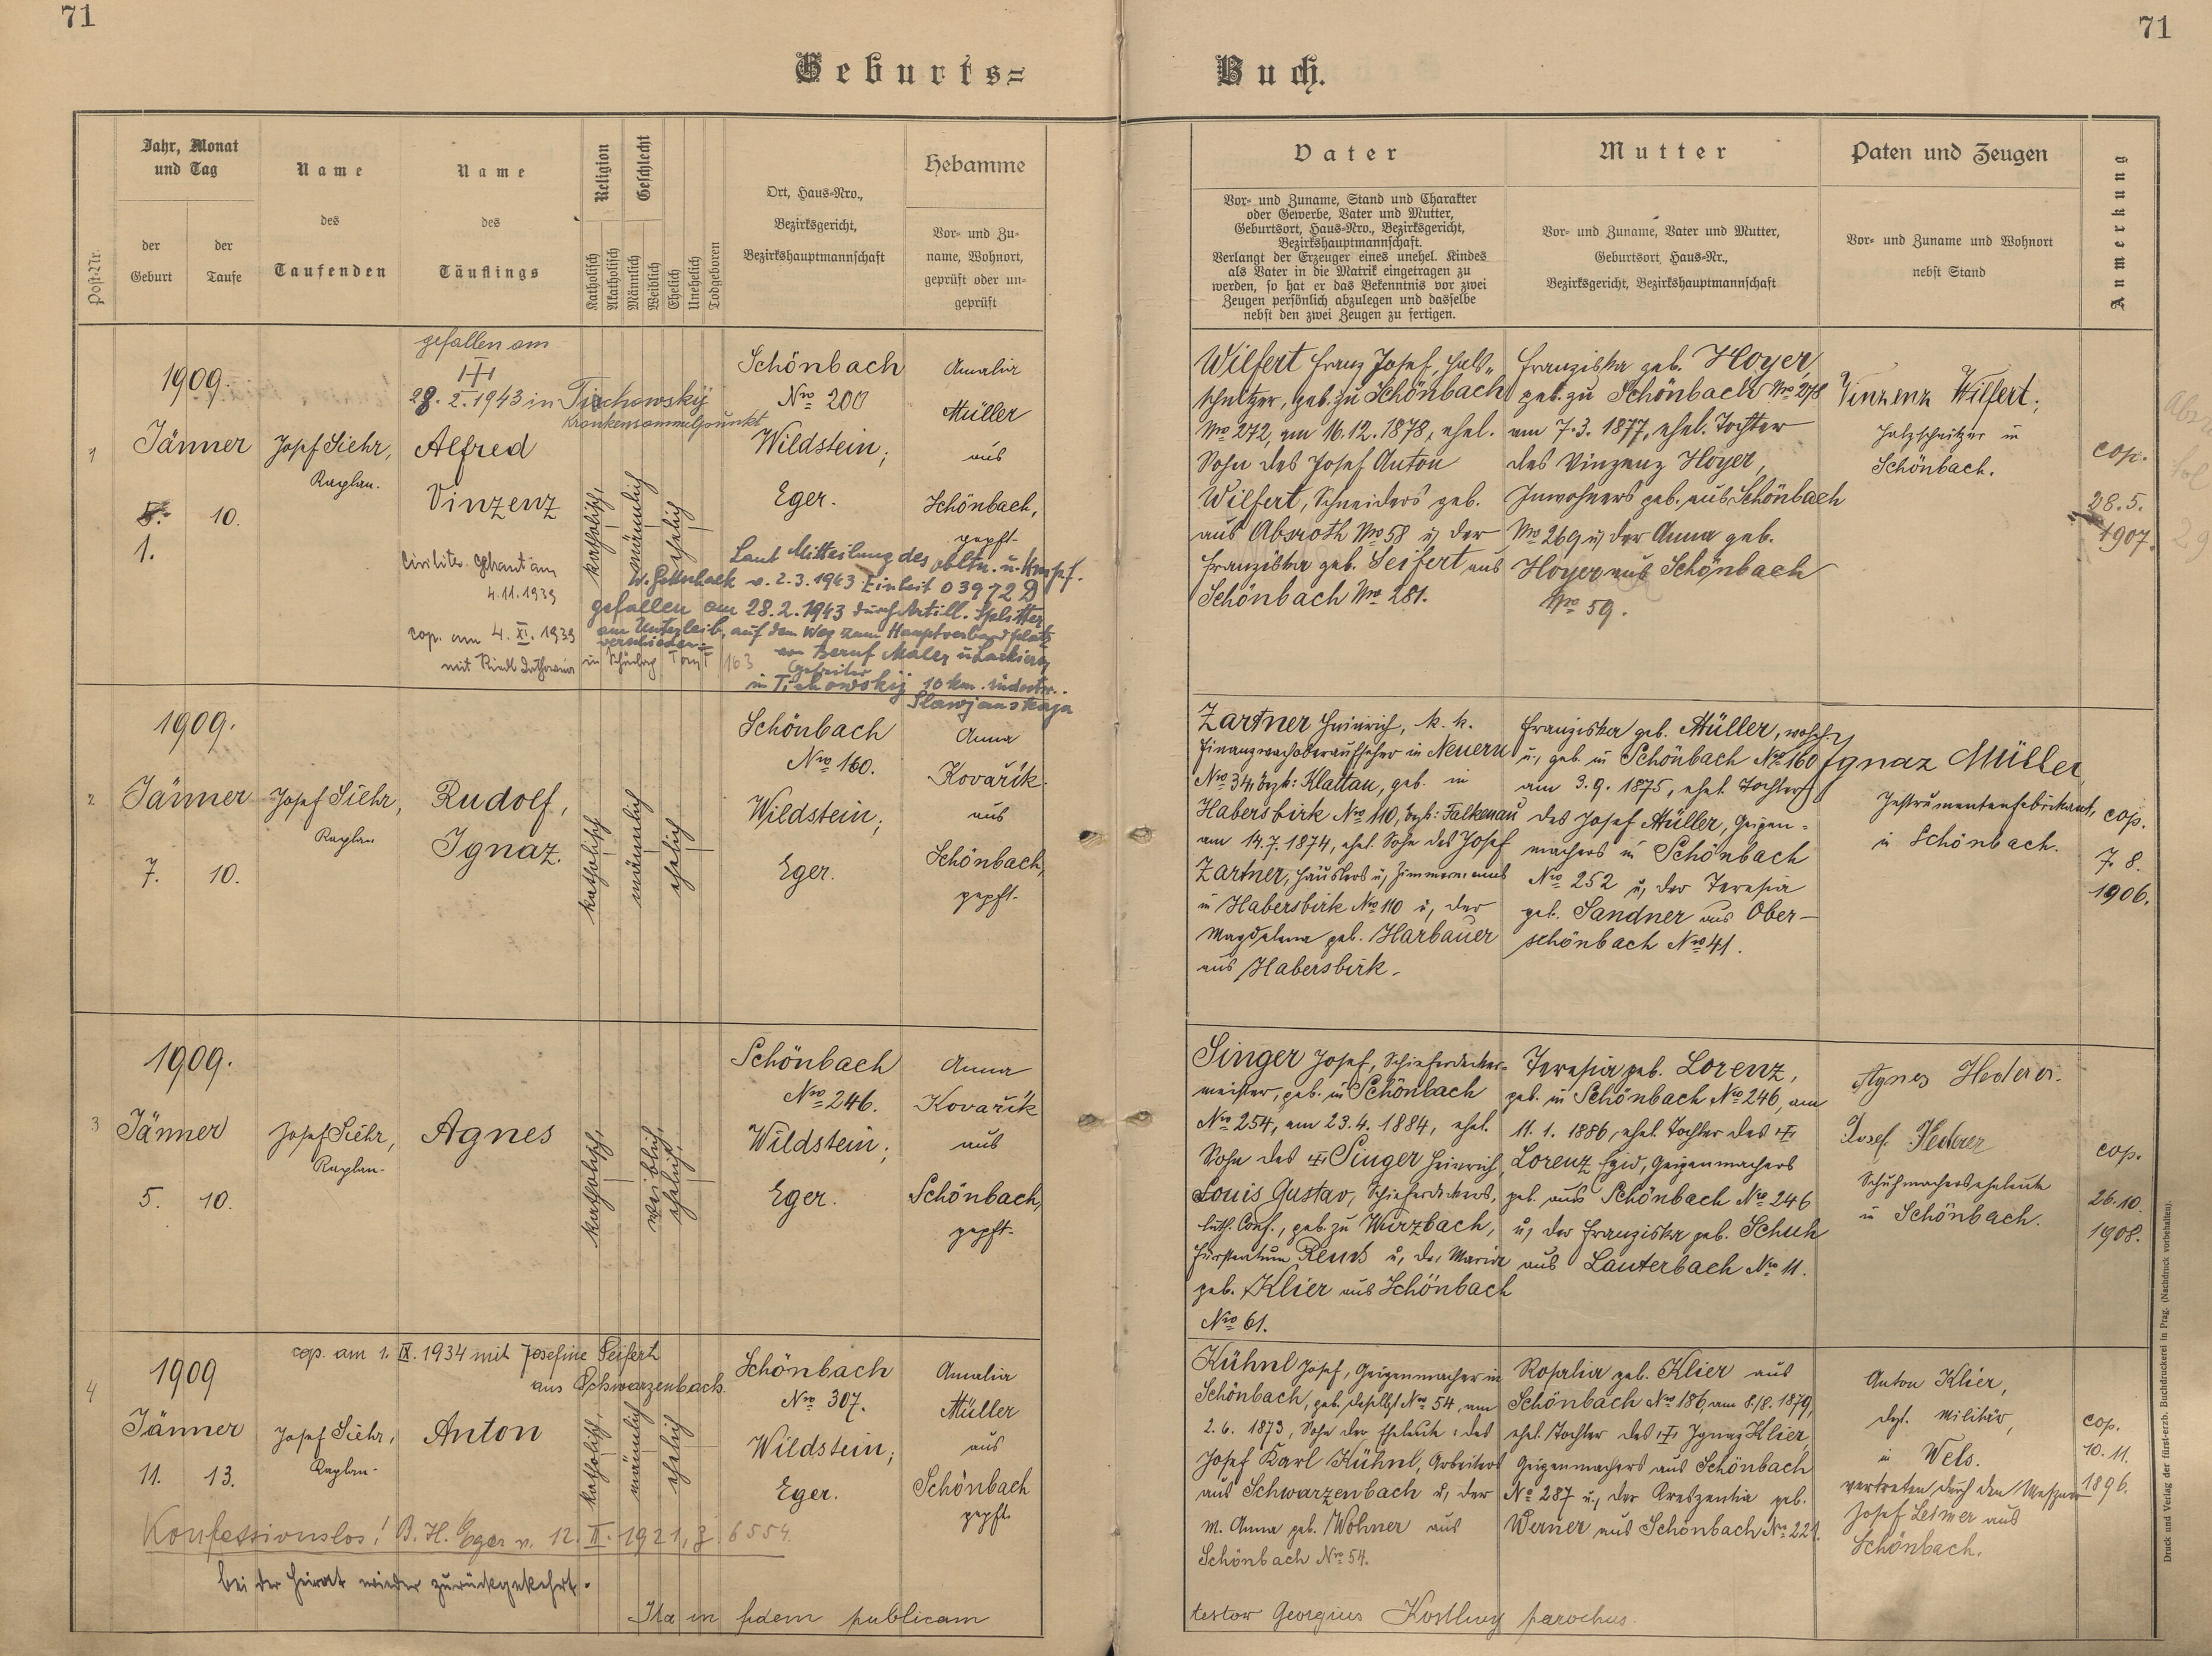 71
71
Geburts=
Buch.
Post-Nr.
Jahr, Monat
und Tag
der
Geburt
der
Taufe
Name
des
Taufenden
Name
des
Täuflings
Religion
Katholisch
Akatholisch
Geschlecht
Männlich
Weiblich
Ehelich
Unehelich
Todgeboren
Ort, Haus=Nro.,
Bezirksgericht,
Bezirkshauptmannschaft
Hebamme
Vor= und Zu=
name, Wohnort,
geprüft oder un=
geprüft
Vater
Vor= und Zuname, Stand und Charakter
oder Gewerbe, Vater und Mutter,
Geburtsort, Haus=Nro., Bezirksgericht,
Bezirkshauptmannschaft.
Verlangt der Erzeuger eines unehel. Kindes
als Vater in die Matrik eingetragen zu
werden, so hat er das Bekenntnis vor zwei
Zeugen persönlich abzulegen und dasselbe
nebst den zwei Zeugen zu fertigen.
Mutter
Vor= und Zuname, Vater und Mutter,
Geburtsort, Haus=Nr.,
Bezirksgericht, Bezirkshauptmannschaft
Paten und Zeugen
Vor= und Zuname und Wohnort
nebst Stand
Anmerkung
1
1909.
Jänner
1.
10.
Josef Siehr,
Kaplan.
gefallen am
28. 2. 1943 in Tischowskij
Krankensammelpunkt
Alfred
Vinzenz
Civiliter getraut am
4.11.1939
cop. am 4. XI. 1939
mit Riedl
in Schönbach
163
katholisch,
männlich
ehelich
Schönbach
Nro 200
Wildstein;
Eger.
Amalia
Müller
aus
Schönbach,
gepft.
Laut Mitteilung des Obltn. u.
v. 2.3.1943 Einheit 03972D
gefallen am 28.2.1943 durch Artill. Splitter
am Unterleib, auf dem Weg zum Hauptverbandplatz
verschieden =
von Beruf Maler u Lackierer
Gefreiter
in Tischowskij 10 km. südostw..
Slawjanskaja
Wilfert Franz Josef, Holz„
schnitzer, geb. zu Schönbach
Nro 272, am 16.12.1878, ehel.
Sohn des Josef Anton
Wilfert, Schneiders geb.
aus Absroth Nro 58 u, der
Franziska geb. Seifert aus
Schönbach Nro 281.
Franziska geb. Hoyer,
geb. zu Schönbach Nro 278
am 7.3.1877, ehel. Tochter
des Vinzenz Hoyer,
Inwohners geb. aus Schönbach
Nro 269 u, der Anna geb.
Hoyer aus Schönbach
Nro 59.
Vinzenz Wilfert;
Holzschnitzer in
Schönbach.
cop.
28.5.
1907.
2
1909.
Jänner
7.
10.
Josef Siehr,
Kaplan
Rudolf,
Ignaz.
katholisch
männlich
ehelich
Schönbach
Nro 160.
Wildstein;
Eger.
Anna
Kovařík
aus
Schönbach,
gepft.
Zartner Heinrich, k. k.
Finanzwachoberaufseher in Neuern
Nro 34, Bzk: Klattau, geb. in
Habersbirk Nro 110, Bzk: Falkenau
am 14.7.1874, ehel. Sohn des Josef
Zartner, Häuslers u, Zimmermanns
in Habersbirk Nro 110 u, der
Magdalena geb. Harbauer
aus Habersbirk.
Franziska geb. Müller, wohnh.
u, geb. in Schönbach Nro 160
am 3.9.1875, ehel. Tochter
des Josef Müller, Geigen=
machers in Schönbach
Nro 252 u, der Teresia
geb. Sandner aus Ober-
schönbach Nro 41.
Ignaz Müller
Instrumentenfabrikant,
in Schönbach.
cop.
7. 8.
1906.
3
1909.
Jänner
5.
10.
Josef Siehr,
Kaplan.
Agnes
katholisch,
weiblich,
ehelich,
Schönbach
Nro 246.
Wildstein;
Eger.
Anna
Kovařík
aus
Schönbach,
gepft.
Singer Josef, Schieferdecker=
meister, geb. in Schönbach
Nro 254, am 23.4.1884, ehel.
Sohn des Singer Heinrich
Louis Gustav, Schieferdeckers,
luth. Conf., geb. zu Wurzbach,
Fürstentum Reuss u, der Maria
geb. Klier aus Schönbach
Nro 61.
Teresia geb. Lorenz,
geb. in Schönbach Nro 246, am
11.1.1886, ehel. Tochter des
Lorenz Egid, Geigenmachers
geb. aus Schönbach Nro 246
u, der Franziska geb. Schuh
aus Lauterbach Nro 11.
Agnes Hederer.
Josef Hederer
Schuhmachersehelaute
in Schönbach.
cop.
26.10.
1908.
4
cop. am 1. IX. 1934 mit Josefine Seifert
aus Schwarzenbach.
1909
Jänner
11.
13.
Josef Siehr,
Kaplan.
Anton
katholisch,
männlich
ehelich
Schönbach
Nro 307.
Wildstein;
Eger.
Amalia
Müller
aus
Schönbach
gepft.
Konfessionslos! B. H. Eger v. 12. II. 1921, Z. 6554.
bei der Heirat wieder zurückgekehrt.
Kühnl Josef, Geigenmacher in
Schönbach, geb. daselbst Nro 54, am
2.6.1873, Sohn der Eheleute: des
Josef Karl Kühnl, Arbeiters
aus Schwarzenbach u, der
M. Anna geb. Wohner aus
Schönbach Nro 54.
Rosalia geb. Klier aus
Schönbach Nro 186, am 8./8. 1879,
ehel. Tochter des Ignaz Klier,
Geigenmachers aus Schönbach
No 287 u, der Kreszentia geb.
Werner aus Schönbach No 221.
Anton Klier,
dzt. Militär,
in Wels.
vertreten durch den Mesner
Josef Leimer aus
Schönbach.
cop.
10.11.
1896.
Ita in fidem publicam
testor Georgius parochus.
Druck und Verlag der fürst-erzb. Buchdruckerei in Prag. (Nachdruck vorbehalten).